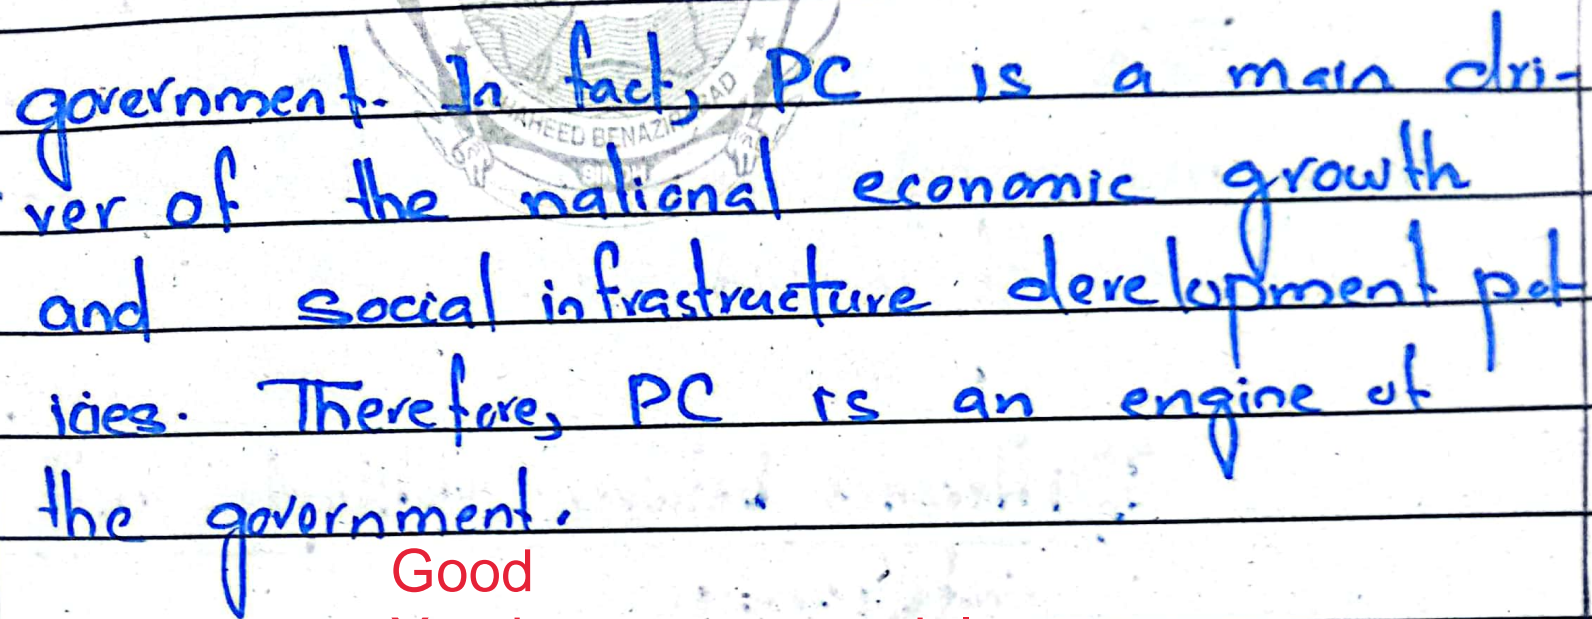 government. In fact, PC is a main dri-
ver of the national economic growth
and social infrastructure development pol-
icies. Therefore, PC is an engine of
the government.
Good
SHAHEED BENAZIR
SINDH